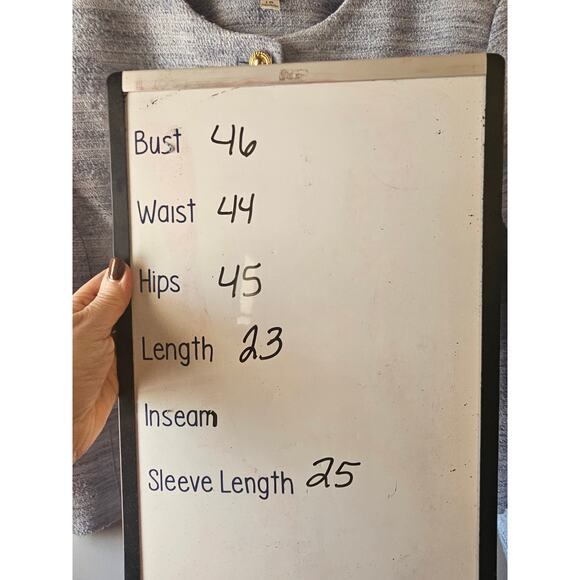 Bust 46
Waist 44
Hips 45
Length 23
Inseam
Sleeve Length 25